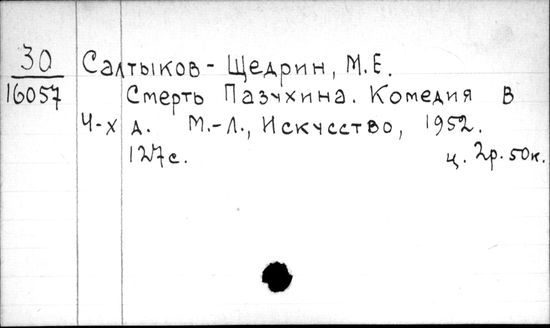 30
16057
Салтыков-Щедрин, М.Е.
Смерть Пазухина. Комедия в
4-х д. М.-Л., Искусство, 1952.
127с. ц. 2р. 50к.